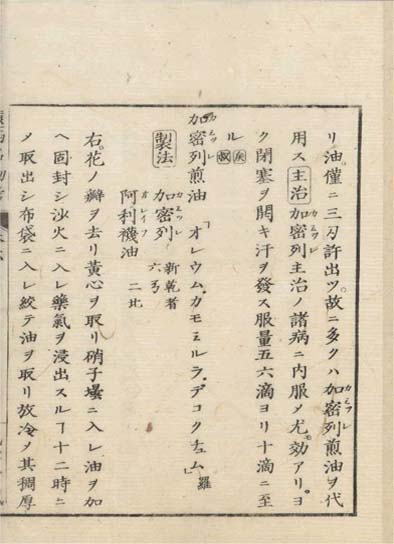 リ油僅ニ三匁許出ツ故ニ多クハ加密列煎油ヲ代
カミツレ
用ス主治加密列主治ノ諸病ニ内服メ尤效アリヨ
カミツレ
ク閉塞ヲ開キ汗ヲ發ス服量五六滴ヨリ十滴ニ至
ル
加密列煎油「オレウム、カモミルラ、デコクチュム」羅
カミツレ
製法 加密列 新乾者 六
カミツレ
阿利襪油 二
オレイフ
右花ノ瓣ヲ去リ黃心ヲ取リ硝子壜ニ入レ油ヲ加
ヘ固封シ沙火ニ入レ藥氣ヲ浸出スルヿ十二時ニ
メ取出シ布袋ニ入レ絞テ油ヲ取リ放冷メ其稠厚